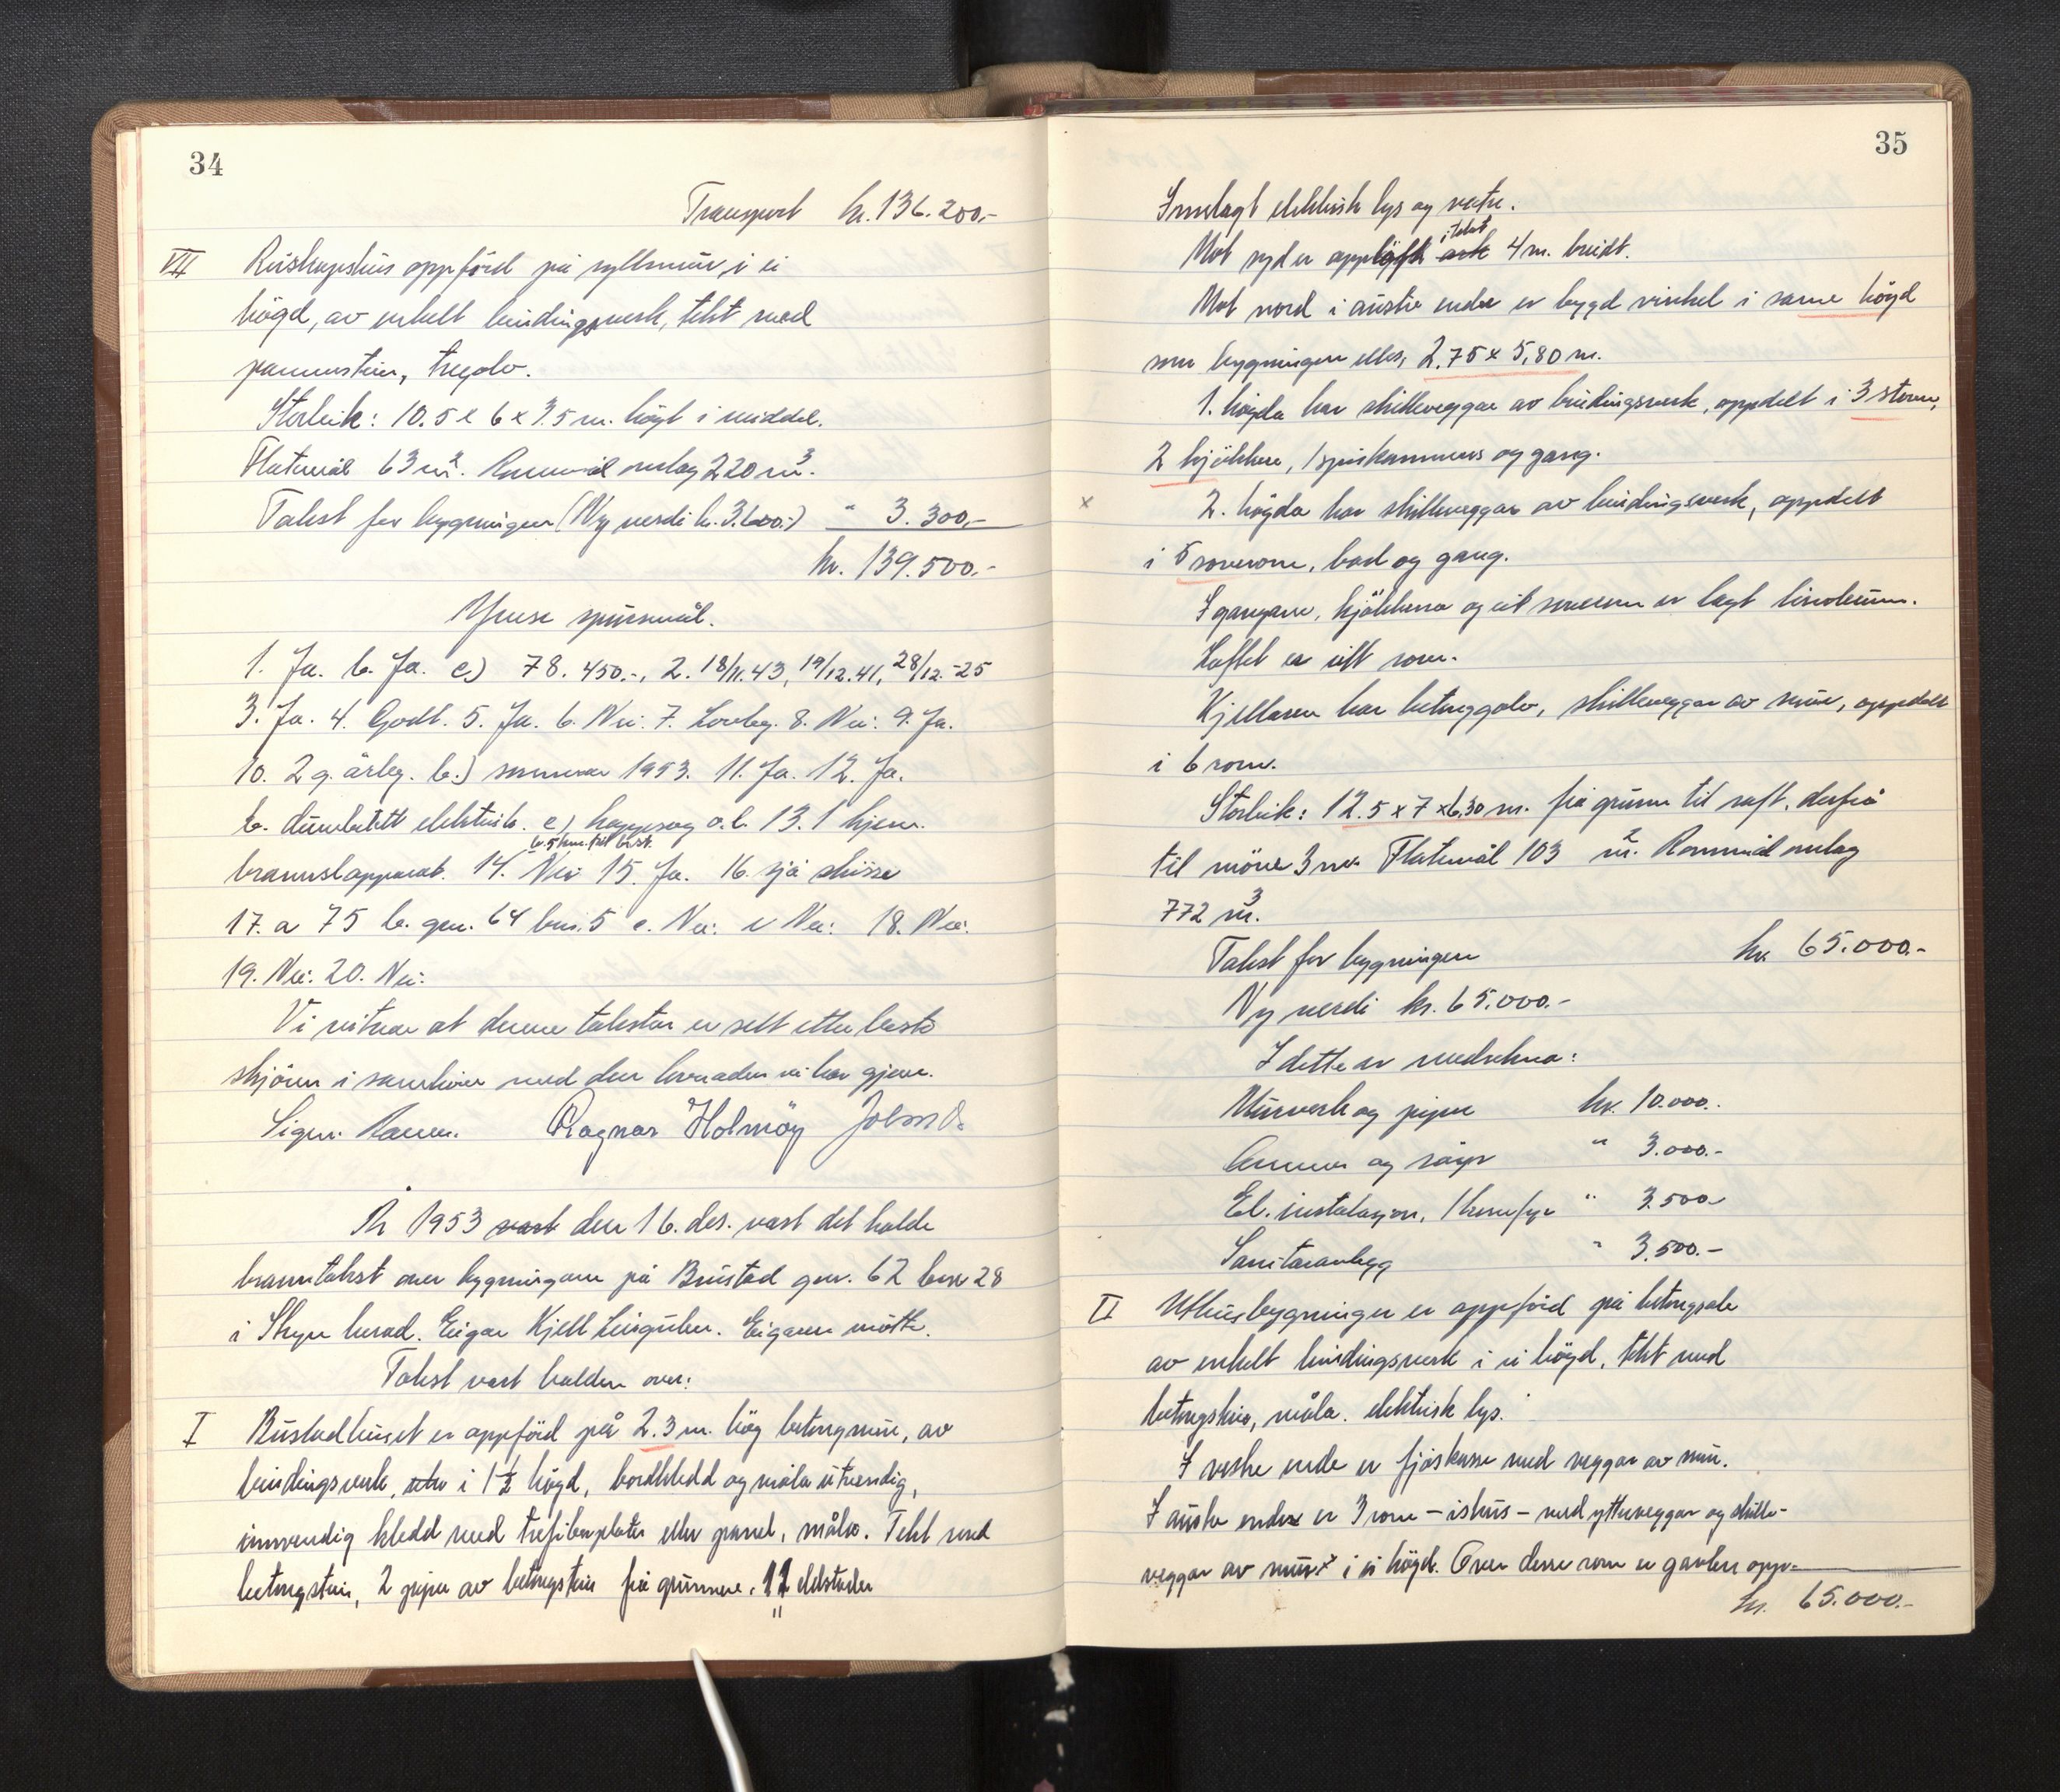 34
Transport kr. 136.200,-
VII Reiskapshus oppförd på syllmur, i ei
högd, av enkelt bindingsverk, tekt med
pannestein, tregolv.
Storleik: 10.5 x 6 x 3.5 m. högt i middel.
Flatemål 63 m². Rommål omlag 220 m³.
Takst for bygningen (Ny verdi kr. 3.600.-) " 3.300,-
kr. 139.500.-
Ymse spursmål.
1. Ja. b. Ja. c) 78.450.-, 2. 18/11.43, 19/12.41, 28/12.-25
3. Ja. 4. Godt. 5. Ja. 6. Nei. 7. Lovleg. 8. Nei. 9. Ja.
10. 2 g. årleg. b.) sommaren 1953. 11. Ja. 12. Ja.
b. elektrisk. c) kappsag o.l. 13. 1 hjem.
brannslapparat. 14. Nei 15. Ja. 16. sjå skisse
17. a 75 b. gnr. 64 bnr. 5 c. Nei: Nei: 18. Nei:
19. Nei: 20. Nei:
Vi vitnar at denne taksten er sett etter beste
skjönn i samhöve med den lovnaden vi har gjeve.
Sign. Ragnar Holmöy
År 1953 vart den 16. des. vart det halde
branntakst over bygningane på Bustad gnr. 62 bnr 28
i Stryn herad. Eigar Kjell. Eigaren mötte.
Takst vart halden over:
I Bustadhuset er oppförd på 2.3 m. hög betongmur, av
bindingsverk, i 1½ högd, bordkledd og måla utvendig,
innvendig kledd med trefiberplater eller panel, måla. Tekt med
betongstein, 2 piper av betongstein frå grunnen. 11 eldstader
35
Innlagt elektrisk lys og vatn.
Mot syd er oppløft i taket ark 4 m. breidt.
Mot nord i austre enden er bygd vinkel i same högd
som bygningen elles, 2.75 x 5,80 m.
1. högda har skilleveggar av bindingsverk, oppdelt i 3 stover,
2 kjökken, 1 spiskammers og gang.
x 2. högda har skilleveggar av bindingsverk, oppdelt
i 5 soverom, bad og gang.
I gangane, kjökkena og eit soverom er lagt linoleum.
Loftet er eitt rom.
Kjellaren har betonggolv, skilleveggar av mur, oppdelt
i 6 rom.
Storleik: 12.5 x 7 x 6,30 m. frå grunn til raft, derfrå
til möne 3 m. Flatemål 103 m². Rommål omlag
772 m³.
Takst for bygningen kr. 65.000.-
Ny verdi kr. 65.000.-
I dette er medrekna:
Murverk og piper kr. 10.000.-
Omnar og " 3.000.-
El. instalasjon, 1 " 3.500
Sanitæranlegg " 3.500.-
II Uthusbygningen er oppförd på betongsåle
av enkelt bindingsverk i ei högd, tekt med
betongskiv, måla. elektrisk lys.
I vestre ende er fjöskasse med veggar av mur.
I austre enden er 3 rom - ishus - med ytterveggar og skille-
veggar av mur i ei högd. Over desse rom er garden opp-
kr. 65.000.-